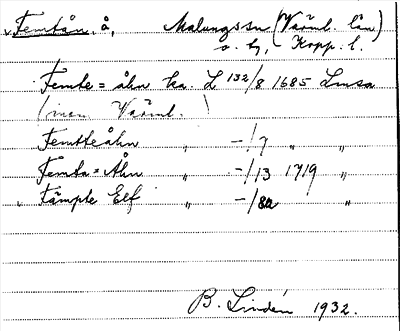 Femtån, å, Malungssn (Värml. län)
o. h., Kopp. l.
Femte=åhn ka. L 132/8 1685 Lmsa
(inom Värml. )
Femtteåhn " -/7 " "
Femta=Åhn " -/13 1719 "
Fämpte Elf " -/82 "
B. Lindén 1932.